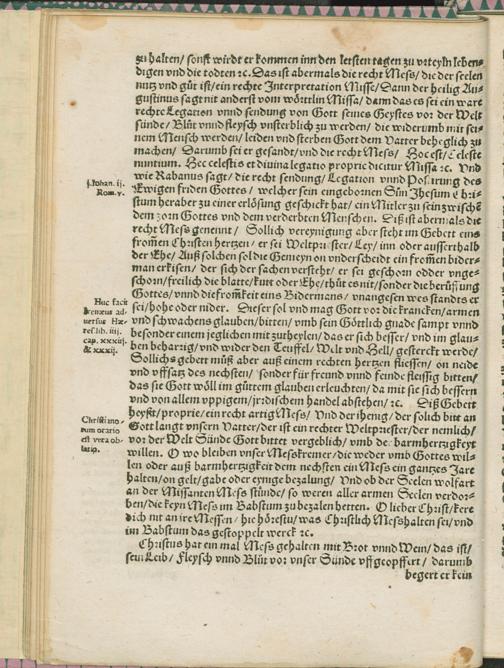 zu halten/ sonst wirdt er kommen inn den letsten tagen zu vrteyln leben-
digen vnd die todten ꝛc. Das ist abermals die recht Mess/ die der seelen
nutz vnd gůt ist/ ein rechte Interpretation Misse/ Dann der heilig Au-
gustinus sagt nit anderst vom wörtlin Missa/ dann das es sei ein ware
rechte Legation vnnd sendung von Gott seines Geystes vor der Welt
sünde/ Blůt vnnd fleysch vnsterblich zu werden/ die widerumb mit sei-
nem Mensch werden/ leiden vnd sterben Gott dem Vatter beheglich zů
machen/ Darumb sei er gesandt/ vnd die recht Mess/ Hoc est/ Celeste
nuntium. Hec celestis et diuina legatio proprie dicitur Missa ꝛc. Vnd
wie Rabanus sagt/ die recht sendung/ Legation vnnd trung des
j. Johan. ij.
Rom. v.
Ewigen friden Gottes/ welcher sein eingebornen Sün Jhesum Chri-
stum heraber zu einer erlösung geschickt hat/ ein Mitler zů sein zwischē
dem zorn Gottes vnd dem verderbten Menschen. Diß ist abermals die
recht Mess genennt/ Sollich vereynigung aber steht im Gebett eins
from̄en Christen hertzen/ er sei Weltpriester/ Ley/ inn oder ausserthalb
der Ehe/ Auß solchen sol die Gemeyn on vnderscheidt ein from̄en bider-
man erkisen/ der sich der sachen versteht/ er sei geschorn odder vnge-
schorn/ freilich die blatte/ kutt oder Ehe/ thůt es nit/ sonder die berüffung
Gottes/ vnnd die from̄keit eins Bidermans/ vnangesen wes standts er
sei/ hohe oder nider. Dieser sol vnd mag Gott vor die krancken/ armen
Huc facit
Ireneus ad-
uersus Hæ-
res. lib. iiij.
cap. xxxiij.
& xxxiiij.
vnd schwachens glauben/ bitten/ vmb sein Göttlich gnade sampt vnnd
besonder einem jeglichen mit zurheylen/ das er sich besser/ vnd im glau-
ben behartig/ vnd wider den Teuffel/ Welt vnd Hell/ gesterckt werde/
Sollichs gebett můß aber auß einem rechten hertzen fliessen/ on neide
vnd vffsatz des nechsten/ sonder für freund vnnd feinde fleissig bitten/
das sie Gott wöll im gůttem glauben erleuchten/ da mit sie sich bessern
vnd von allem vppigem/ jrdischem handel abstehen/ ꝛc. Diß Gebett
heyßt/ proprie/ ein recht artig Mess/ Vnd der ihenig/ der solich bitt an
Christi mo-
rum oratio
est vera ob-
latio.
Gott langt vnsern Vatter/ der ist ein rechter Weltpriester/ der nemlich/
vor der Welt Sünde Gott bittet vergeblich/ vmb der barmhertzigkeyt
willen. O wo bleiben vnser Messkremer/ die weder vmb Gottes wil-
len oder auß barmhertzigkeit dem nechsten ein Mess ein gantzes Jare
halten/ on gelt/ gabe oder eynige bezalung/ Vnd ob der Seelen wolfart
an der Missanten Mess stünde/ so weren aller armen Seelen verdor-
ben/ die keyn Mess im Babstum zu bezalen hetten. O lieber Christ/ kere
dich nit an ire Messen/ hie hörestu/ was Christlich Messhalten sei/ vnd
im Babstum das gestoppelt werck ꝛc.
Christus hat ein mal Mess gehalten mit Brot vnnd Wein/ das ist/
sein Leib/ Fleysch vnnd Blůt vor vnser Sünde vffgeopffert/ darumb
begert er kein